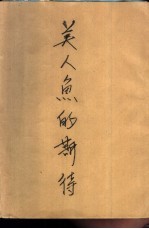 美人魚的斯待